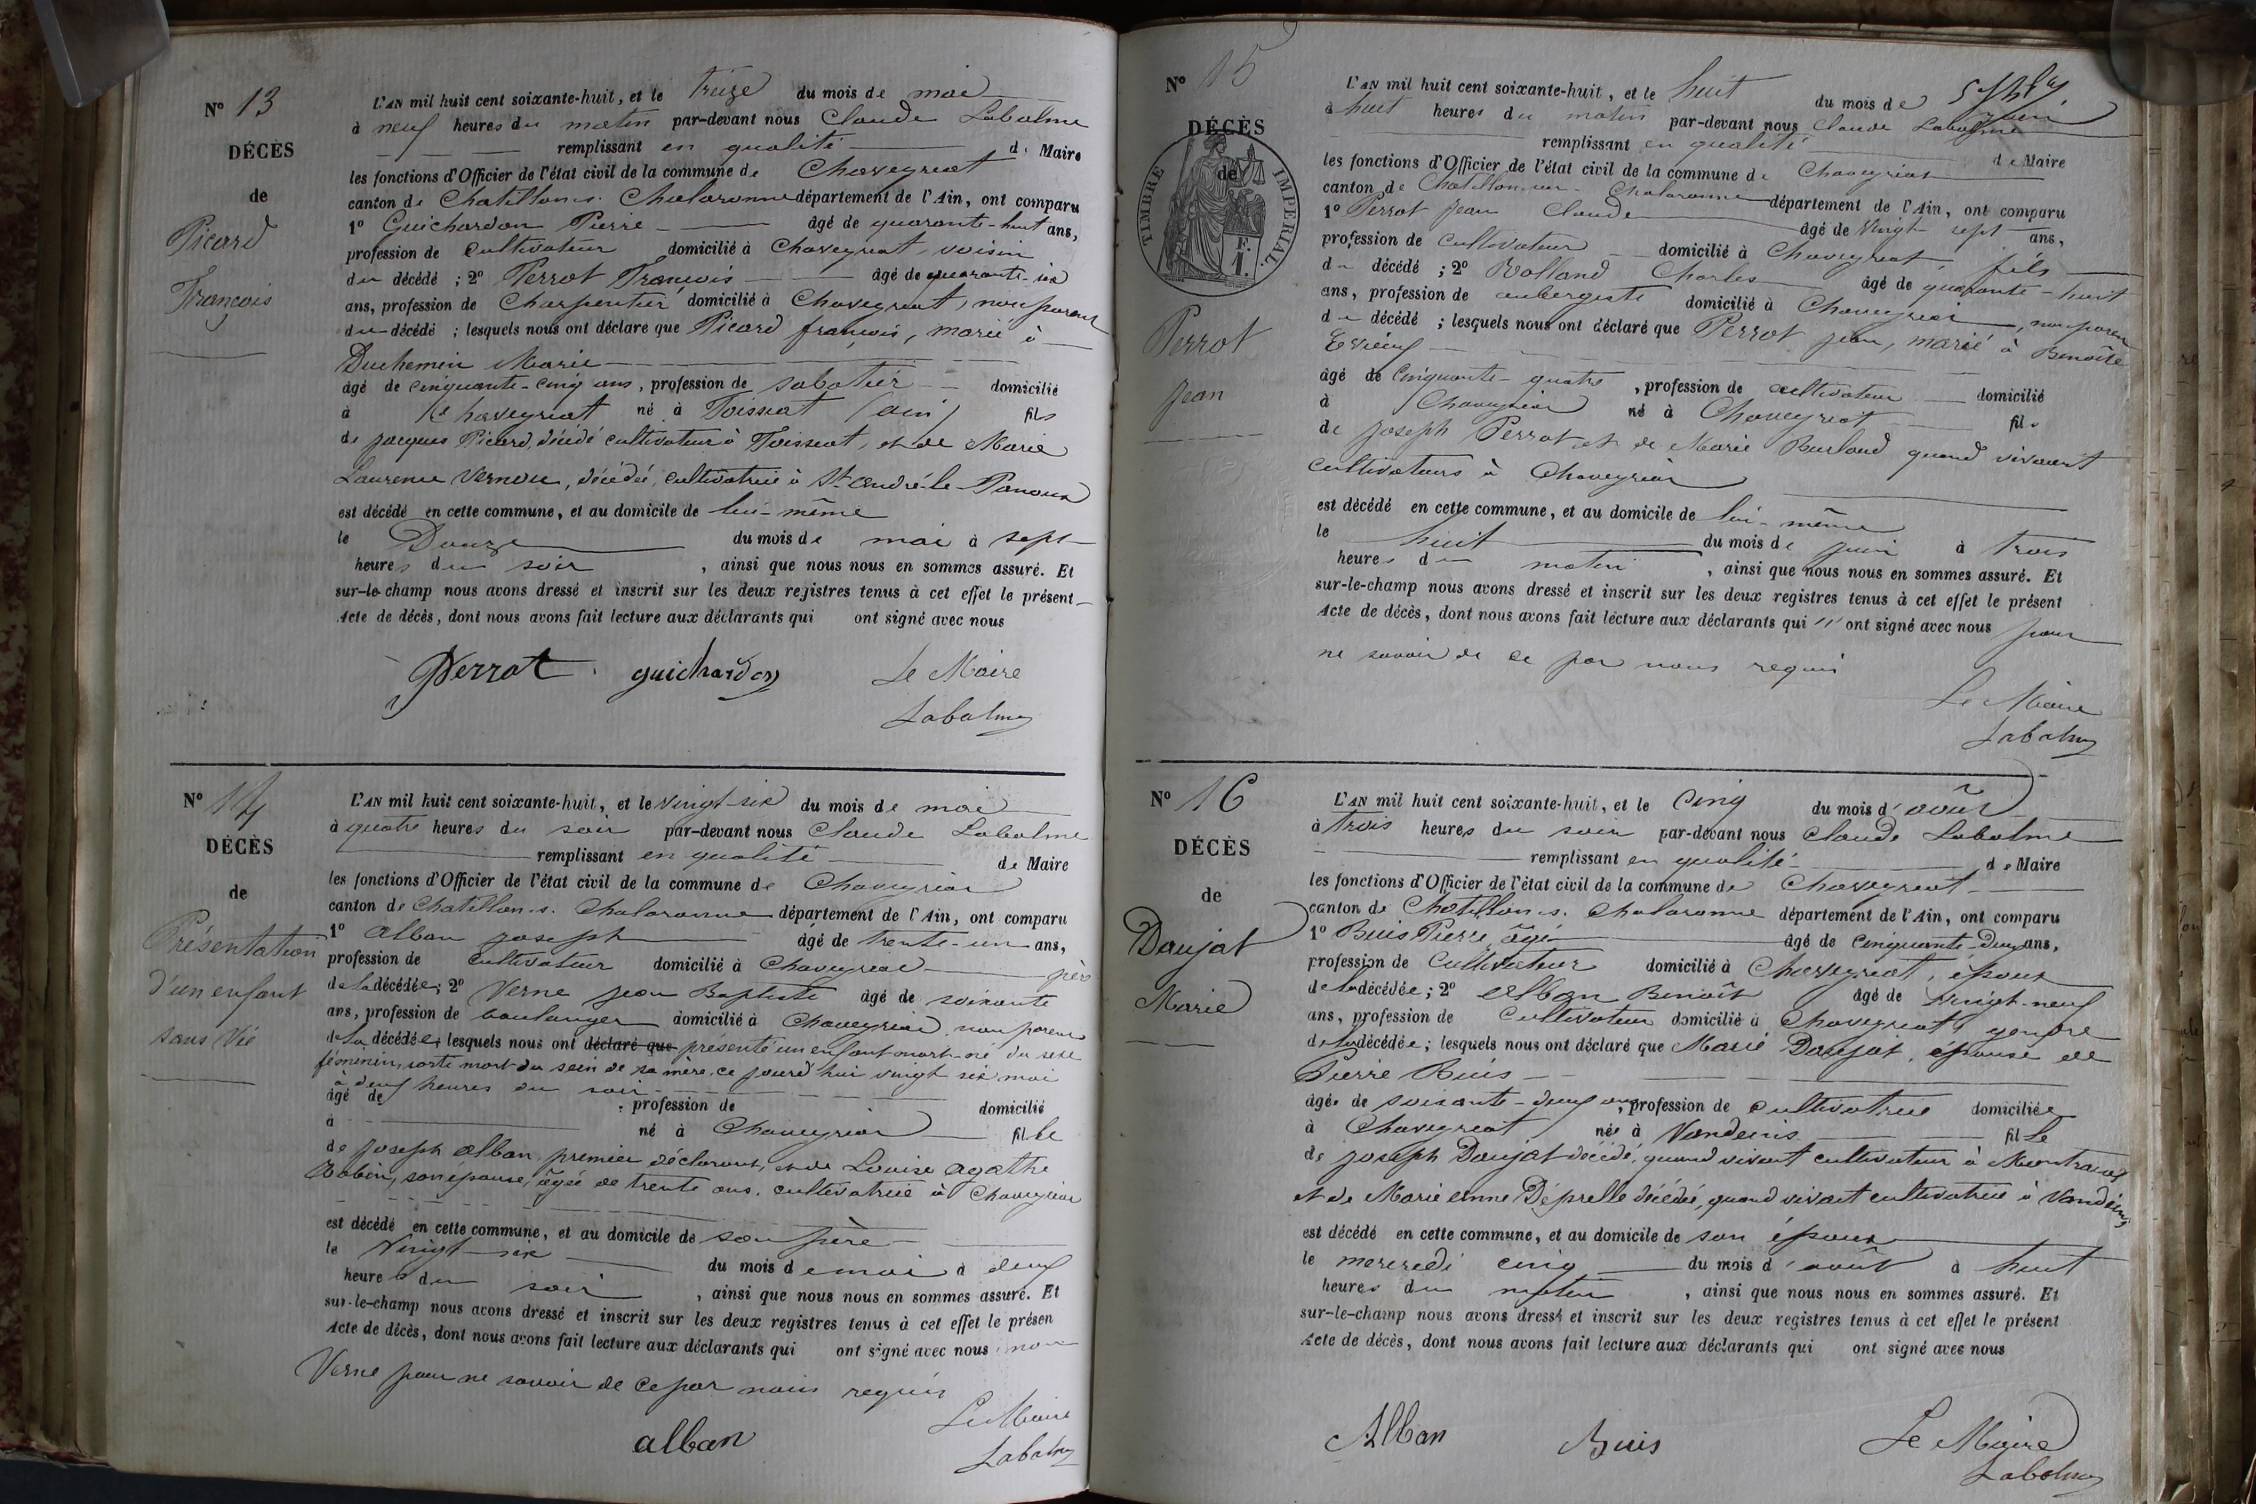 N° 13
DÉCÈS
de
Picard
François
L'AN mil huit cent soixante-huit, et le treize du mois de mai
à neuf heures du matin par-devant nous Claude Labalme
remplissant en qualité de Maire
les fonctions d'Officier de l'état civil de la commune de Chaveyriat
canton de Chatillon-s. Chalaronne département de l'Ain, ont comparu
1° Guichardon Pierre âgé de quarante-huit ans,
profession de cultivateur domicilié à Chaveyriat, voisin
du décédé ; 2° Perrot François âgé de quarante-six
ans, profession de Charpentier domicilié à Chaveyriat, non parent
du décédé ; lesquels nous ont déclaré que Picard françois, marié à
Duchemin Marie
âgé de cinquante-cinq ans, profession de sabotier domicilié
à Chaveyriat né à Foissiat (ain) fils
de jacques Picard, décédé cultivateur à Foissiat, et de Marie
Laurence Vernoux, décédée, cultivatrice à St andré-le-Panoux
est décédé en cette commune, et au domicile de lui-même
le Douze du mois de mai à sept
heures du soir, ainsi que nous nous en sommes assuré. Et
sur-le-champ nous avons dressé et inscrit sur les deux registres tenus à cet effet le présent
Acte de décès, dont nous avons fait lecture aux déclarants qui ont signé avec nous
Perrot guichardon Le Maire
Labalme
N° 14
DÉCÈS
de
Présentation
d'un enfant
sans Vie
L'AN mil huit cent soixante-huit, et le vingt-six du mois de mai
à quatre heures du soir par-devant nous Claude Labalme
remplissant en qualité de Maire
les fonctions d'Officier de l'état civil de la commune de Chaveyriat
canton de Chatillon-s. Chalaronne département de l'Ain, ont comparu
1° alban joseph âgé de trente-un ans,
profession de cultivateur domicilié à Chaveyriat père
de la décédée; 2° Verne jean Baptiste âgé de soixante
ans, profession de boulanger domicilié à Chaveyriat, non parent
de la décédée; lesquels nous ont déclaré que présenté un enfant mort-né du sexe
féminin, sorte mort du sein de sa mère, ce jourd'hui vingt six mai
à deux heures du soir
âgé de, profession de domicilié
à né à Chaveyriat fille
de joseph alban, premier déclarant, et de Louise agathe
Robin, son épouse, âgée de trente ans, cultivatrice à Chaveyriat
est décédé en cette commune, et au domicile de son père
le Vingt-six du mois de mai à deux
heures du soir, ainsi que nous nous en sommes assuré. Et
sur-le-champ nous avons dressé et inscrit sur les deux registres tenus à cet effet le présen
Acte de décès, dont nous avons fait lecture aux déclarants qui ont signé avec nous non
Verne pour ne savoir de ce par nous requis
alban Le Maire
Labalme
N° 15
DÉCÈS
de
TIMBRE IMPÉRIAL
Perrot
jean
L'AN mil huit cent soixante-huit, et le huit du mois de juin
à huit heures du matin par-devant nous Claude Labalme
remplissant en qualité de Maire
les fonctions d'Officier de l'état civil de la commune de Chaveyriat
canton de Chatillon-sur-Chalaronne département de l'Ain, ont comparu
1° Perrot jean Claude âgé de Vingt-sept ans,
profession de cultivateur domicilié à Chaveyriat, fils
du décédé ; 2° Rolland Charles âgé de quarante-huit
ans, profession de aubergiste domicilié à Chaveyriat, non parent
du décédé ; lesquels nous ont déclaré que Perrot jean, marié à Benoîte
âgé de cinquante-quatre, profession de cultivateur domicilié
à Chaveyriat né à Chaveyriat fils
de joseph Perrot et de Marie Burland quand vivaient
cultivateurs à Chaveyriat
est décédé en cette commune, et au domicile de lui-même
le huit du mois de juin à trois
heures du matin, ainsi que nous nous en sommes assuré. Et
sur-le-champ nous avons dressé et inscrit sur les deux registres tenus à cet effet le présent
Acte de décès, dont nous avons fait lecture aux déclarants qui n'ont signé avec nous pour
ne savoir de ce par nous requis
Le Maire
Labalme
N° 16
DÉCÈS
de
Daujat
Marie
L'AN mil huit cent soixante-huit, et le cinq du mois d'août
à trois heures du soir par-devant nous Claude Labalme
remplissant en qualité de Maire
les fonctions d'Officier de l'état civil de la commune de Chaveyriat
canton de Chatillon-s. Chalaronne département de l'Ain, ont comparu
1° Buis Pierre, âgé âgé de cinquante-deux ans,
profession de Cultivateur domicilié à Chaveyriat, époux
de la décédée ; 2° alban Benoît âgé de vingt-neuf
ans, profession de cultivateur domicilié à Chaveyriat, gendre
de la décédée ; lesquels nous ont déclaré que Marie Daujat, épouse de
Pierre Buis
âgée de soixante-deux ans, profession de cultivatrice domiciliée
à Chaveyriat née à Vandeins fille
de joseph Daujat décédé, quand vivait cultivateur à Montracol
et de Marie anne Déprelle décédée, quand vivait cultivatrice à Vandeins
est décédé en cette commune, et au domicile de son époux
le mercredi cinq du mois d'août à huit
heures du matin, ainsi que nous nous en sommes assuré. Et
sur-le-champ nous avons dressé et inscrit sur les deux registres tenus à cet effet le présent
Acte de décès, dont nous avons fait lecture aux déclarants qui ont signé avec nous
Alban Buis Le Maire
Labalme